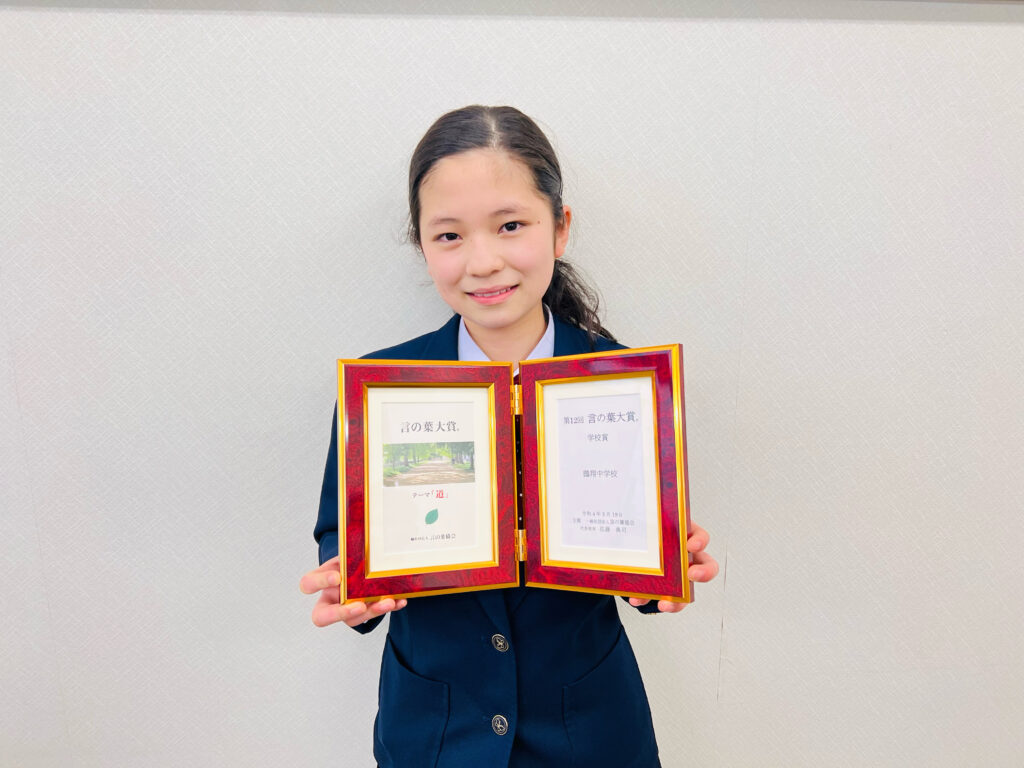 言の葉大賞®
テーマ「道」
一般社団法人 言の葉協会
第12回 言の葉大賞®
学校賞
鵬翔中学校
令和4年3月19日
主催 一般社団法人言の葉協会
代表理事 佐藤